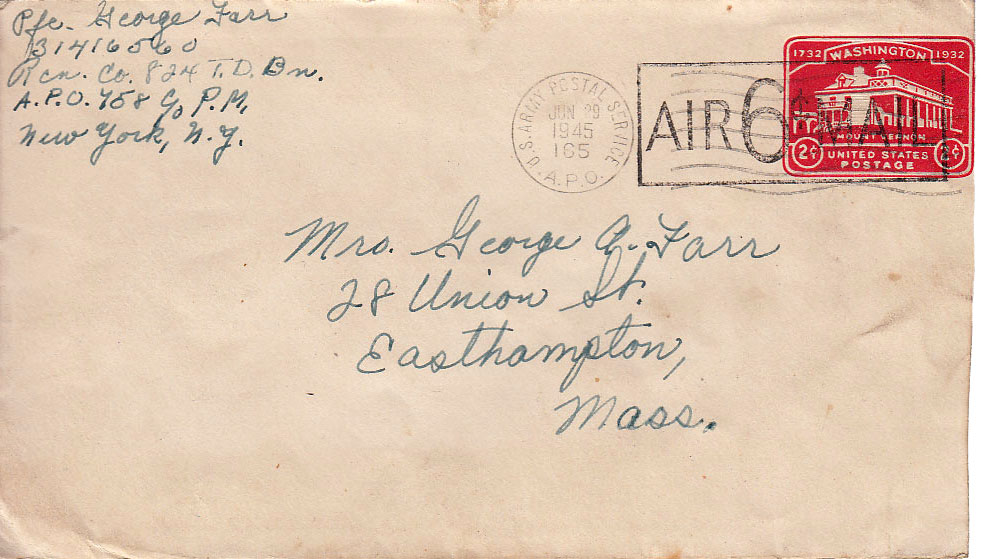 Pfc. George Farr
31416560
Rcn. Co. 824 T.D. Bn.
A.P.O. 758 c/o P.M.
New York, N.Y.
U.S. ARMY POSTAL SERVICE
JUN 29
1945
165
A.P.O.
AIR 6¢ MAIL
1732 WASHINGTON 1932
MOUNT VERNON
2¢ 2¢
UNITED STATES
POSTAGE
Mrs. George A. Farr
28 Union St.
Easthampton,
Mass.